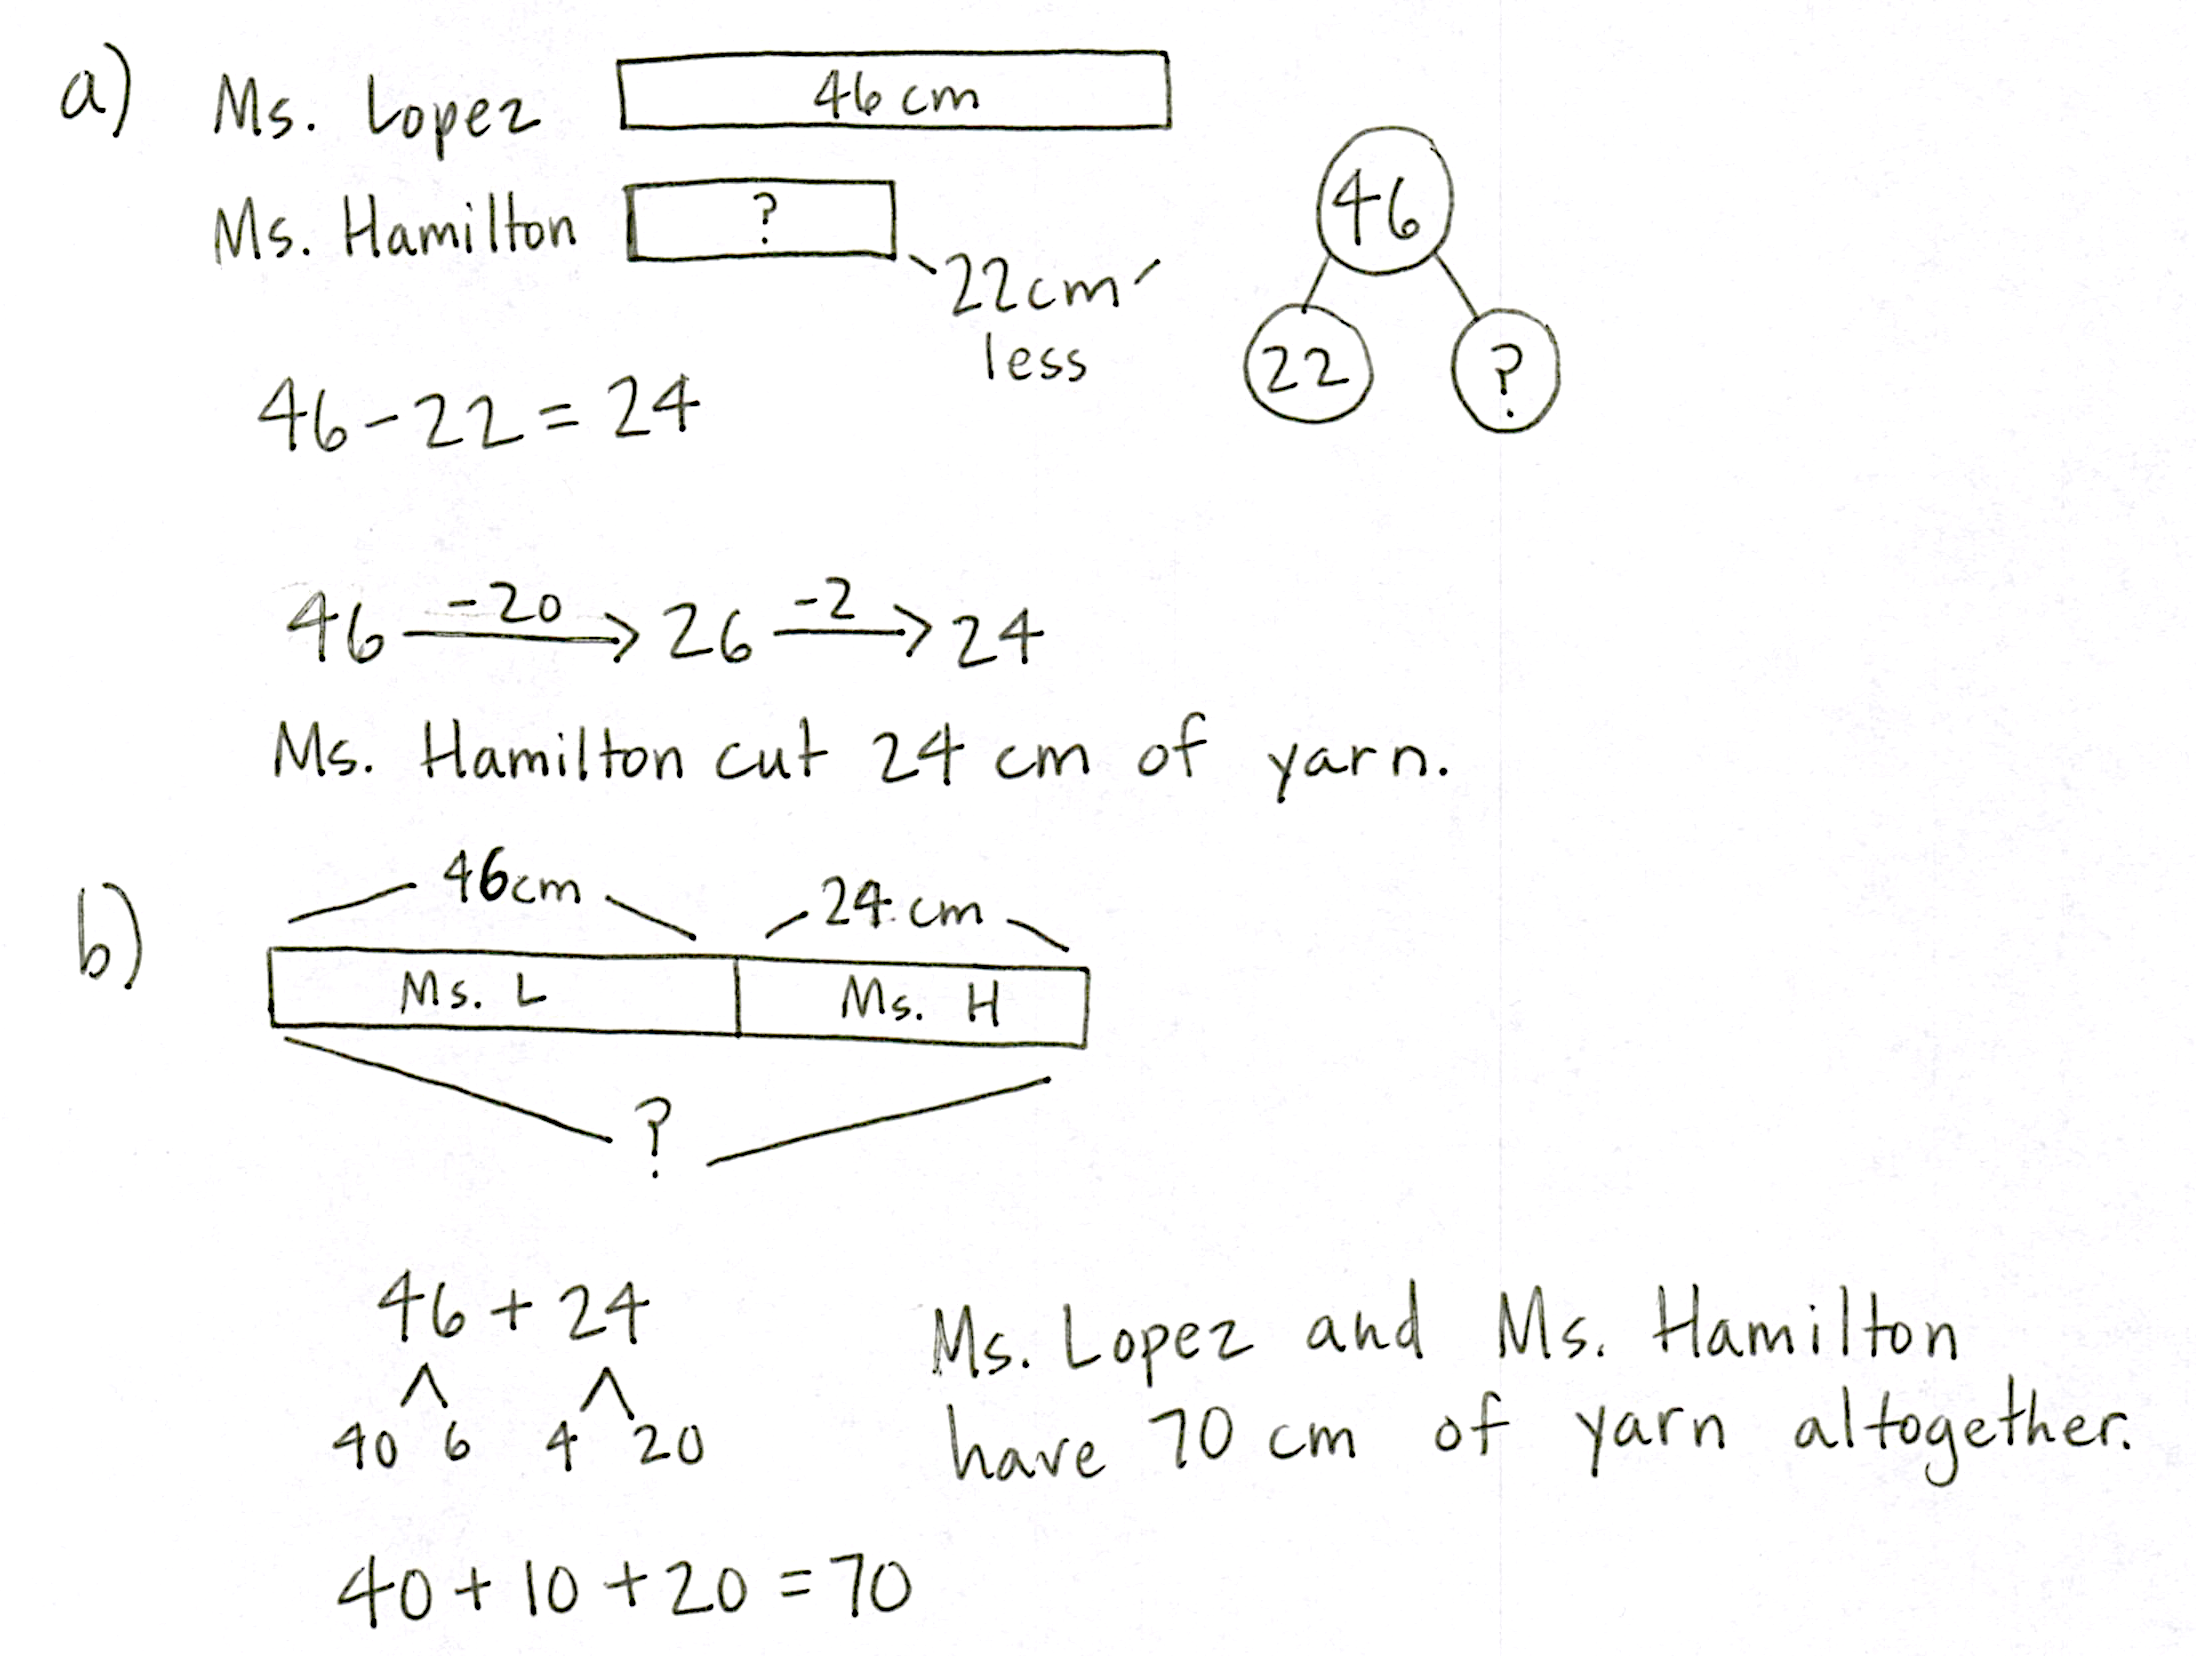 a) Ms. Lopez 46 cm
Ms. Hamilton ?
22cm
less
46
22 ?
46 - 22 = 24
46 -20 → 26 -2 → 24
Ms. Hamilton cut 24 cm of yarn.
b) 46cm 24 cm
Ms. L Ms. H
?
46 + 24
40 6 4 20
40 + 10 + 20 = 70
Ms. Lopez and Ms. Hamilton
have 70 cm of yarn altogether.